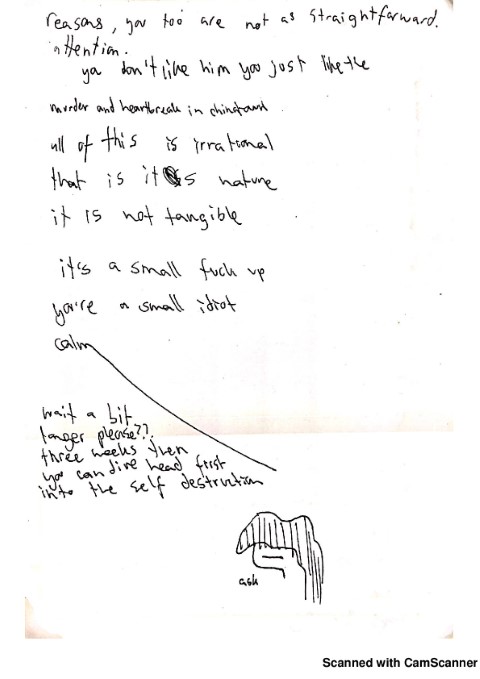 reasons, you too are not as straightforward.
attention.
ya don't like him you just like the
murder and heartbreak in chinatown
all of this is irrational
that is it's nature
it is not tangible
it's a small fuck up
you're a small idiot
calm
wait a bit
longer please??
three weeks then
you can dive head first
into the self destruction
ash
Scanned with CamScanner